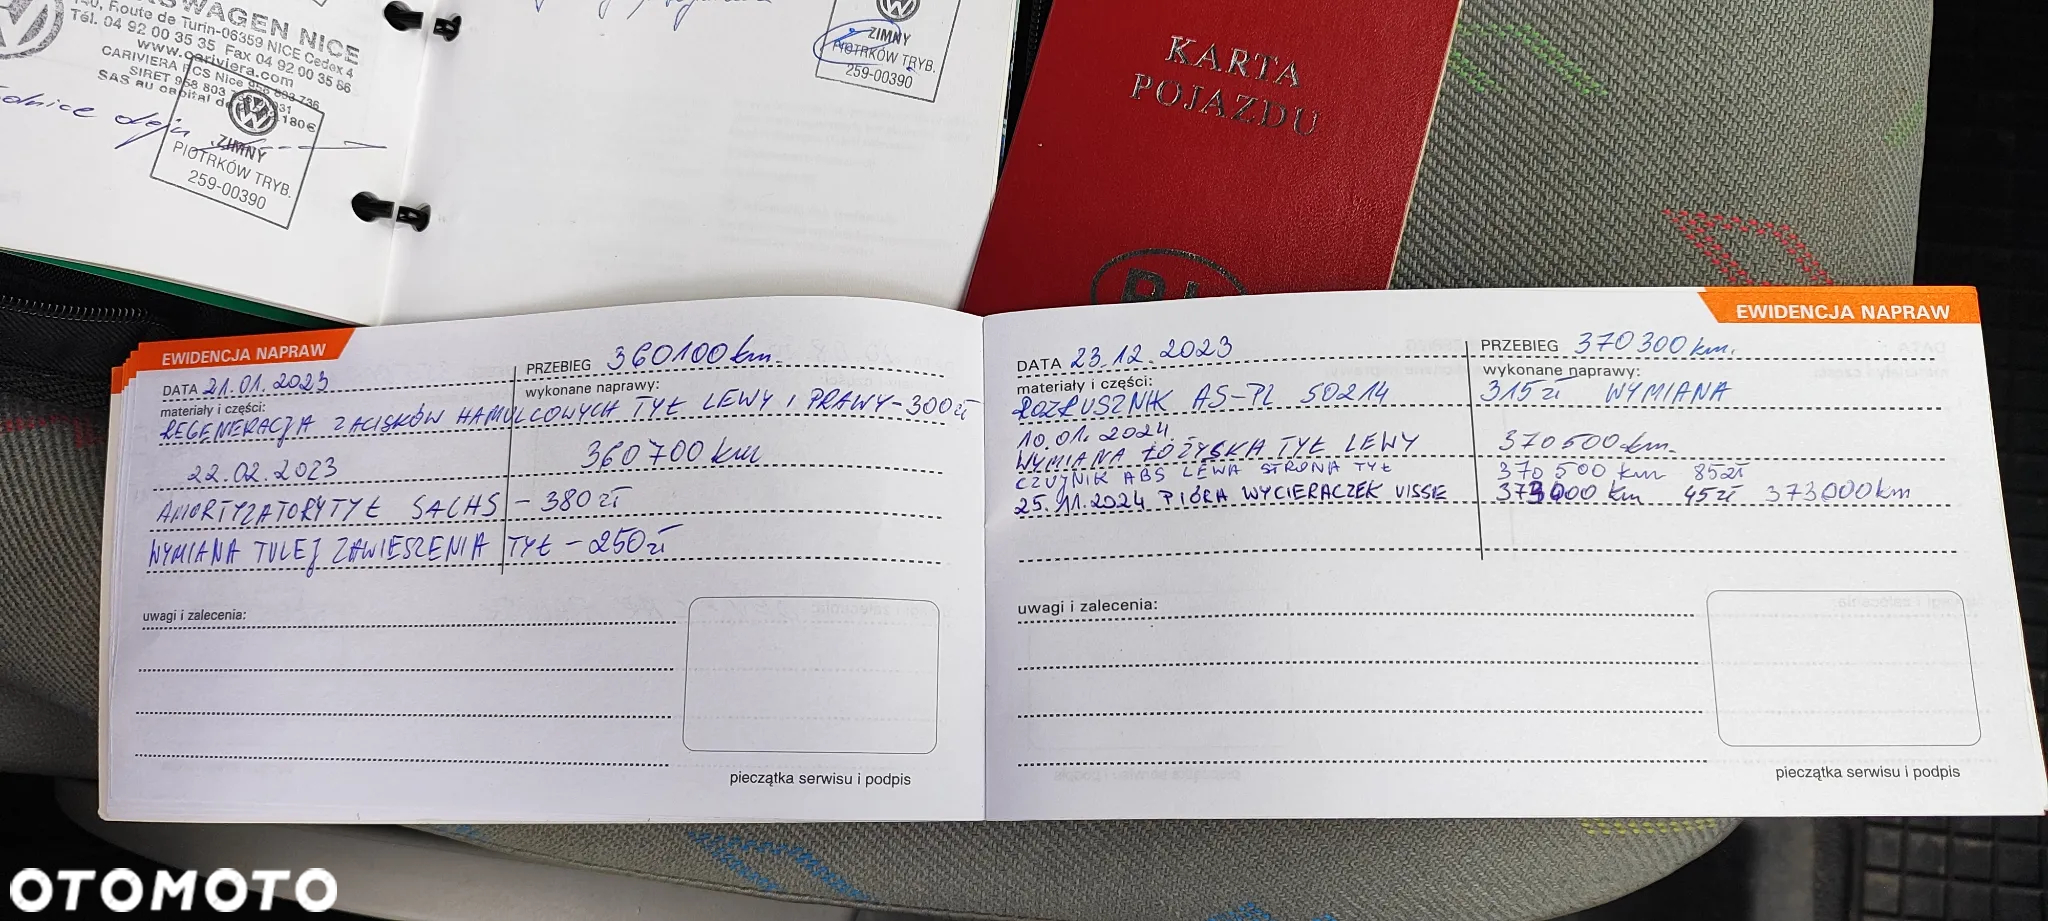 VOLKSWAGEN NICE
140, Route de Turin-06359 NICE Cedex 4
Tél. 04 92 00 35 35 Fax 04 92 00 35 66
www.cariviera.com
CARIVIERA RCS Nice
SIRET 968 803
SAS au capital de
180€
ZIMNY
PIOTRKÓW TRYB.
259-00390
ZIMNY
PIOTRKÓW TRYB.
259-00390
KARTA
POJAZDU
PL
EWIDENCJA NAPRAW
DATA 21.01.2023 PRZEBIEG 360100 km.
materiały i części: wykonane naprawy:
REGENERACJA ZACISKÓW HAMULCOWYCH TYŁ LEWY I PRAWY - 300 zł
22.02.2023 360700 km
AMORTYZATORY TYŁ SACHS - 380 zł
WYMIANA TULEJ ZAWIESZENIA TYŁ - 250 zł
uwagi i zalecenia:
pieczątka serwisu i podpis
EWIDENCJA NAPRAW
DATA 23.12.2023 PRZEBIEG 370300 km.
materiały i części: wykonane naprawy:
ROZRUSZNIK AS-PL S0214 315 zł WYMIANA
10.01.2024
WYMIANA ŁOŻYSKA TYŁ LEWY 370500 km.
CZUJNIK ABS LEWA STRONA TYŁ 370500 km 85 zł
25.11.2024 PIÓRA WYCIERACZEK VISSE 373000 km 45 zł 373000 km
uwagi i zalecenia:
pieczątka serwisu i podpis
OTOMOTO